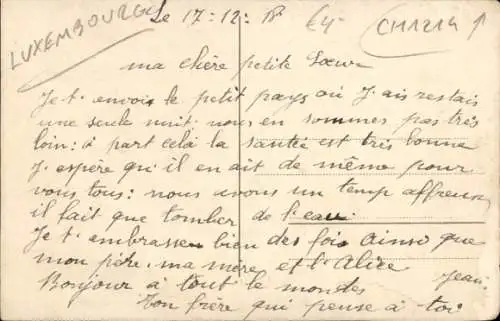 LUXEMBOURG
Le 17-12-18
€4-
CH1214
ma chère petite Soeur
Je t. envois le petit pays où J. ais restais
une seule nuit. nous en sommes pas très
loin: à part celà la santée est très bonne
J. espère qu'il en ait de même pour
vous tous: nous avons un temp affreux
il fait que tomber de l'eau
Je t. embrasse bien des fois ainsi que
mon père. ma mère et l'Alice
Bonjour à tout le mondes Jean
Ton frère qui pense à toi